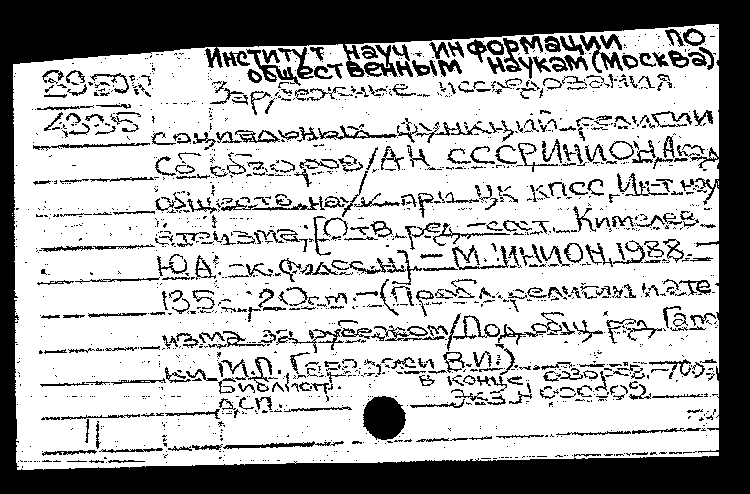 Институт науч. информации по
общественным наукам (Москва).
89-50N
Зарубежные исследования
4335
социальных функций религии
Сб. обзоров / АН СССР, ИНИОН, Акад.
обществ. наук при ЦК КПСС, Ин-т нау
атеизма; [Отв. ред.-сост. Кимелев
Ю.А. - к. филос. н.]. - М.: ИНИОН, 1988. -
135 с.; 20 см. - (Пробл. религии и ате-
изма за рубежом / Под общ. ред. Гапо
ки М.П., Гараджи В.И.)
Библиогр. в конце обзоров. - 700 э
ДСП. Экз. N 000009
11